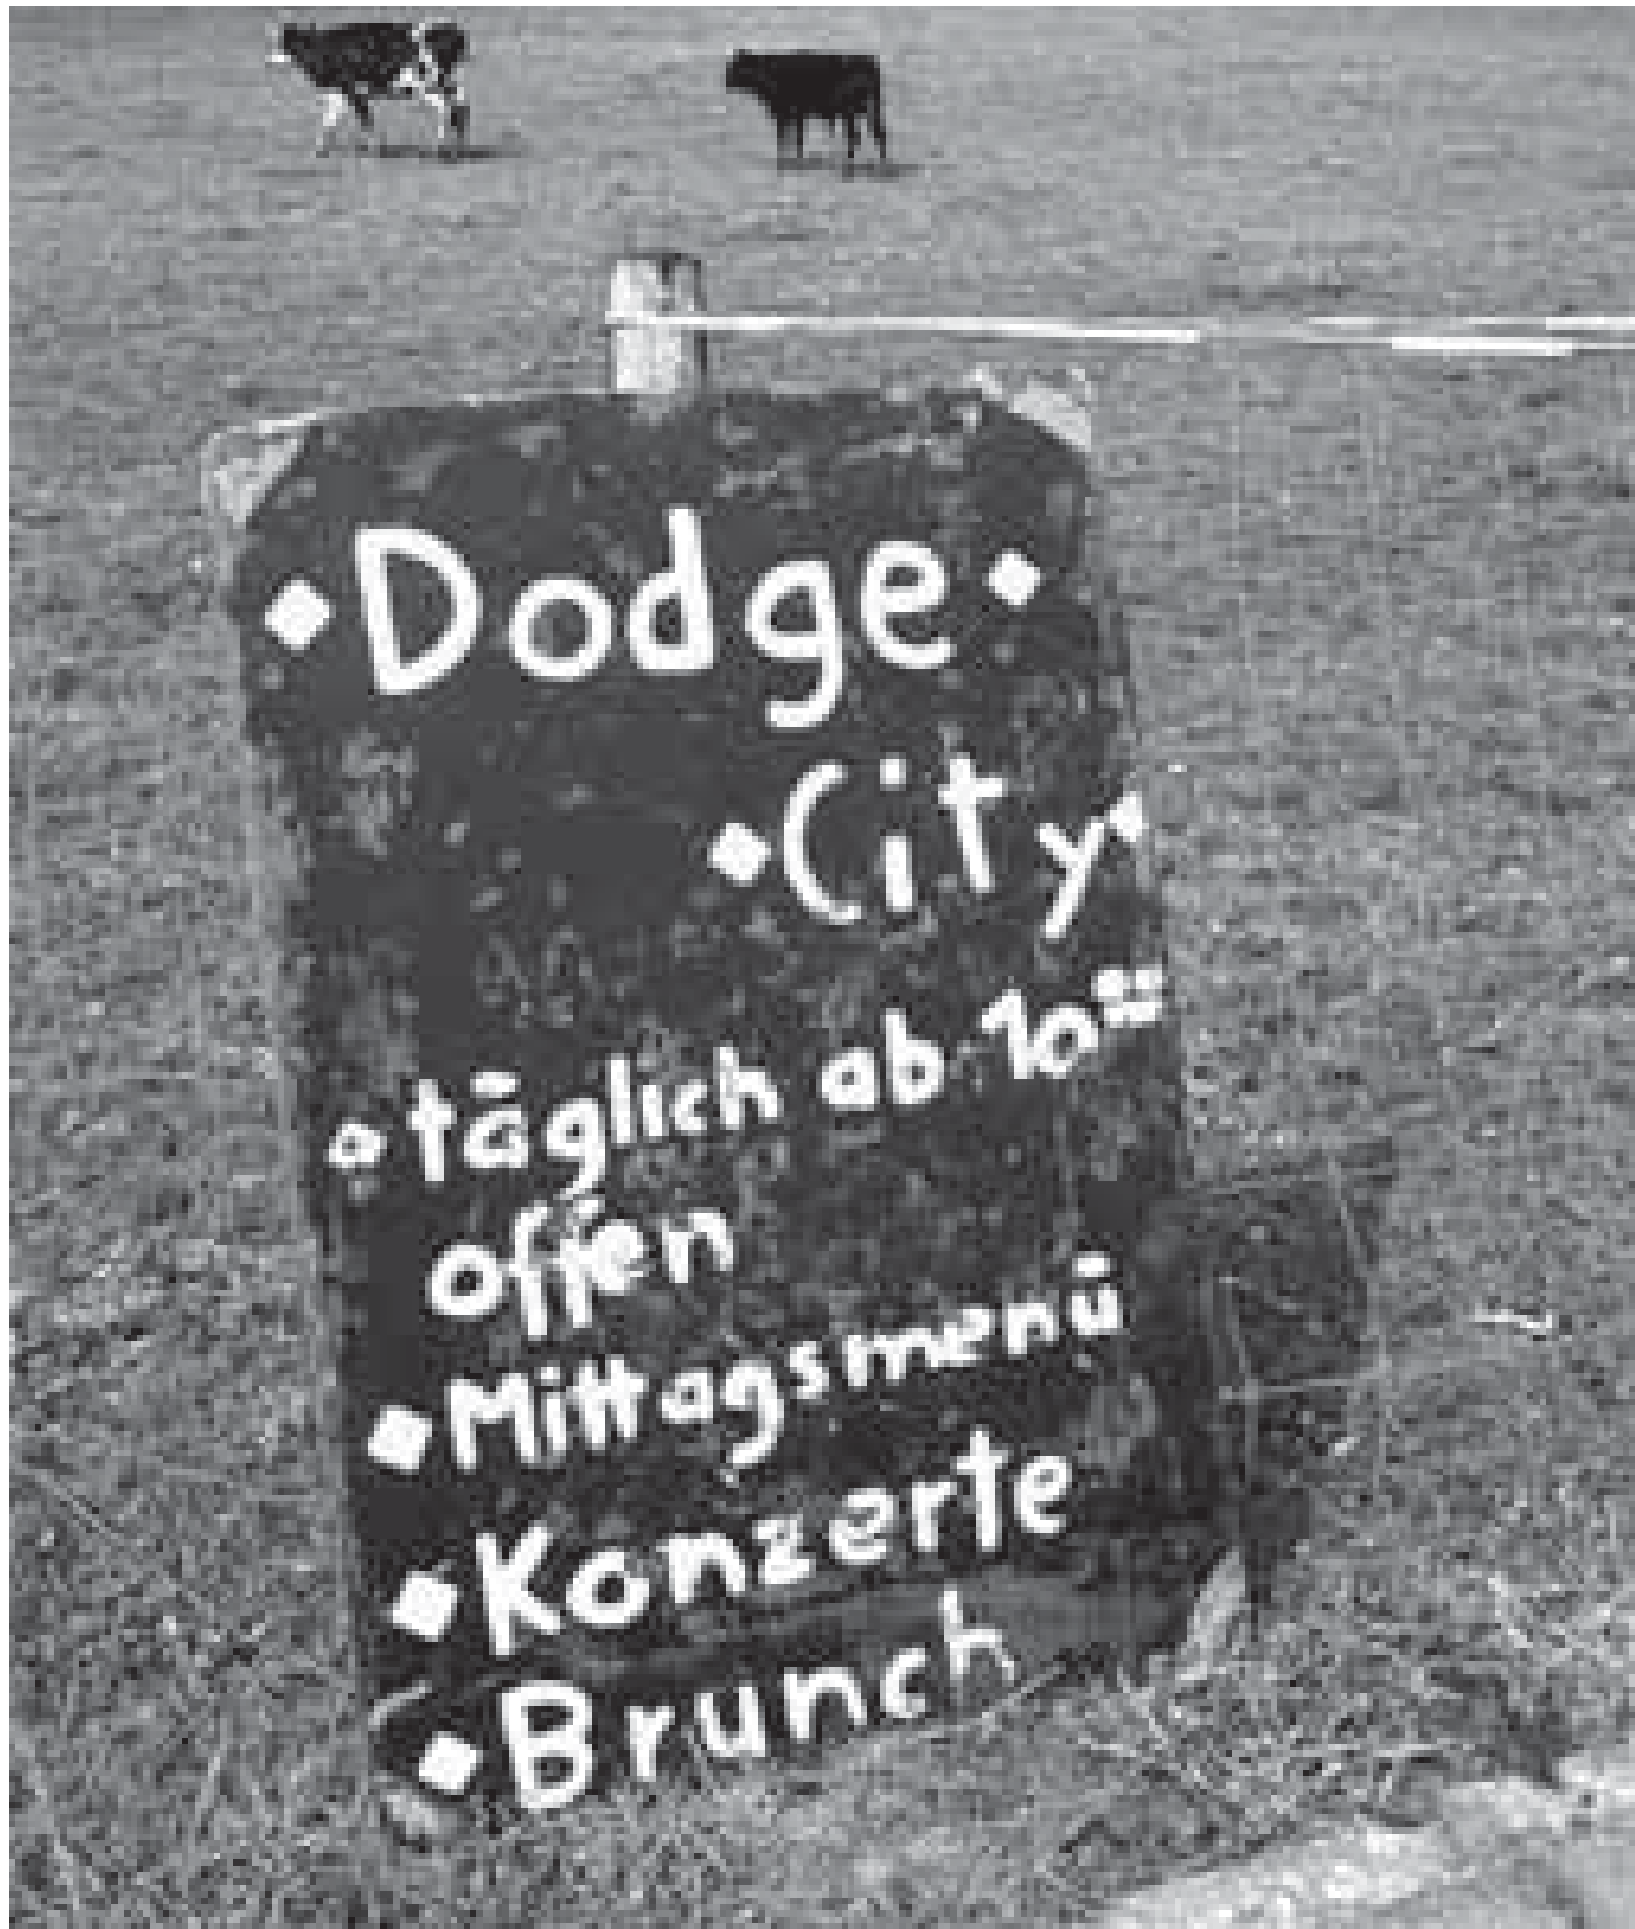 Dodge
City
täglich ab 10⁰⁰
offen
Mittagsmenü
Konzerte
Brunch